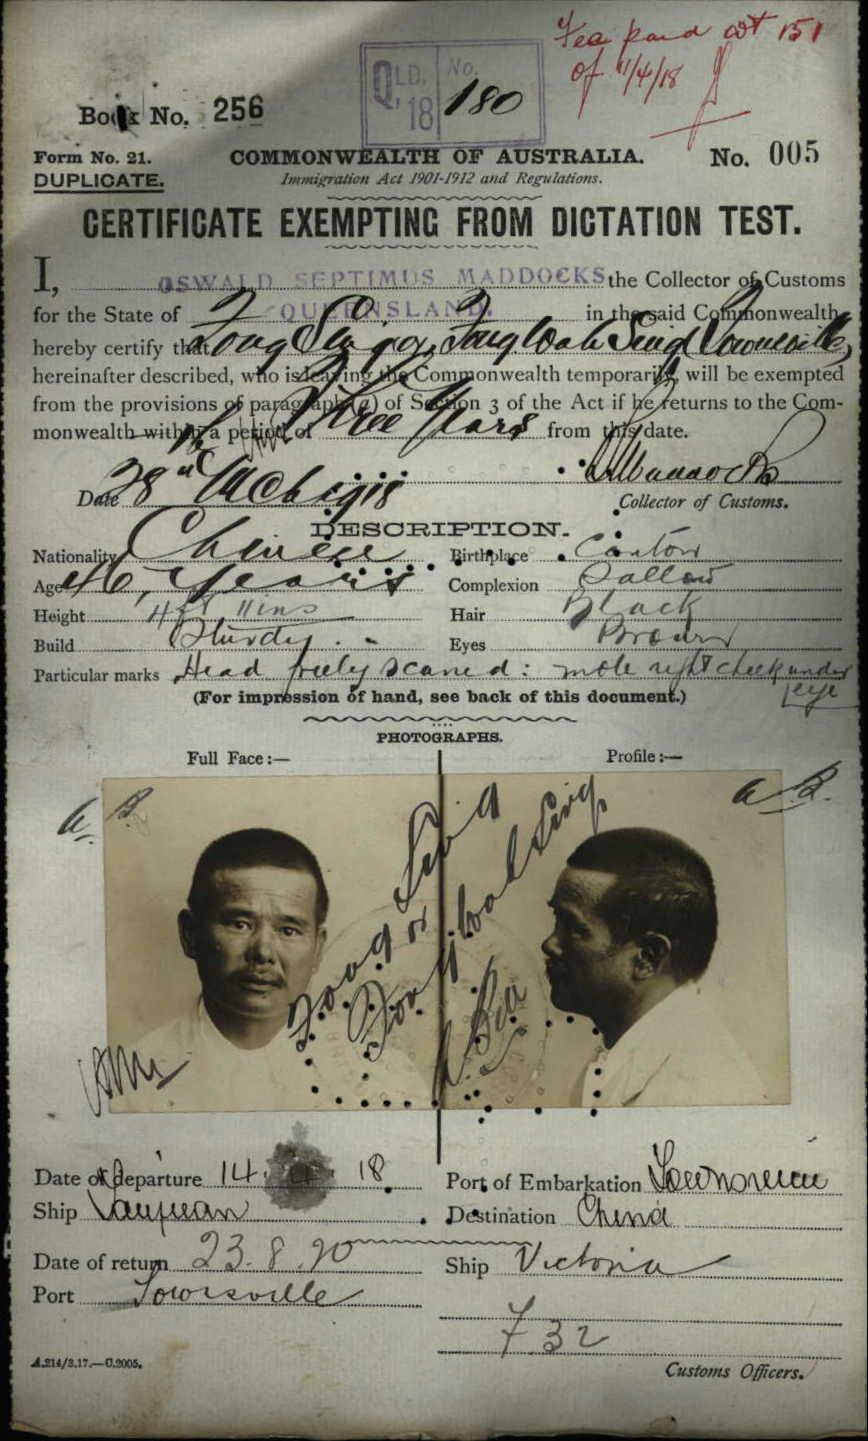 Fee paid wt 151
of 11/4/18
QLD. No.
18 180
Book No. 256
Form No. 21. COMMONWEALTH OF AUSTRALIA. No. 005
DUPLICATE. Immigration Act 1901-1912 and Regulations.
CERTIFICATE EXEMPTING FROM DICTATION TEST.
I, OSWALD SEPTIMUS MADDOCKS the Collector of Customs
for the State of QUEENSLAND. in the said Commonwealth
hereby certify that Fong Sing, Fong Wah Sing Townsville,
hereinafter described, who is leaving the Commonwealth temporarily, will be exempted
from the provisions of paragraph (a) of Section 3 of the Act if he returns to the Com-
monwealth within a period of Three Years from this date.
Date 28th Mch 1918 Collector of Customs.
DESCRIPTION.
Nationality Chinese Birthplace Canton
Age 46 Years Complexion Sallow
Height 4ft 11ins Hair Black
Build Sturdy Eyes Brown
Particular marks Head freely scarred: mole right cheek under eye
(For impression of hand, see back of this document.)
PHOTOGRAPHS.
Full Face:— Profile:—
Fong Sing
or
Fong Wah Sing
Date of departure 14. 4. 18. Port of Embarkation Townsville
Ship Destination China
Date of return 23.8.20 Ship Victoria
Port Townsville
F32
A.214/3.17.—C.2005. Customs Officers.